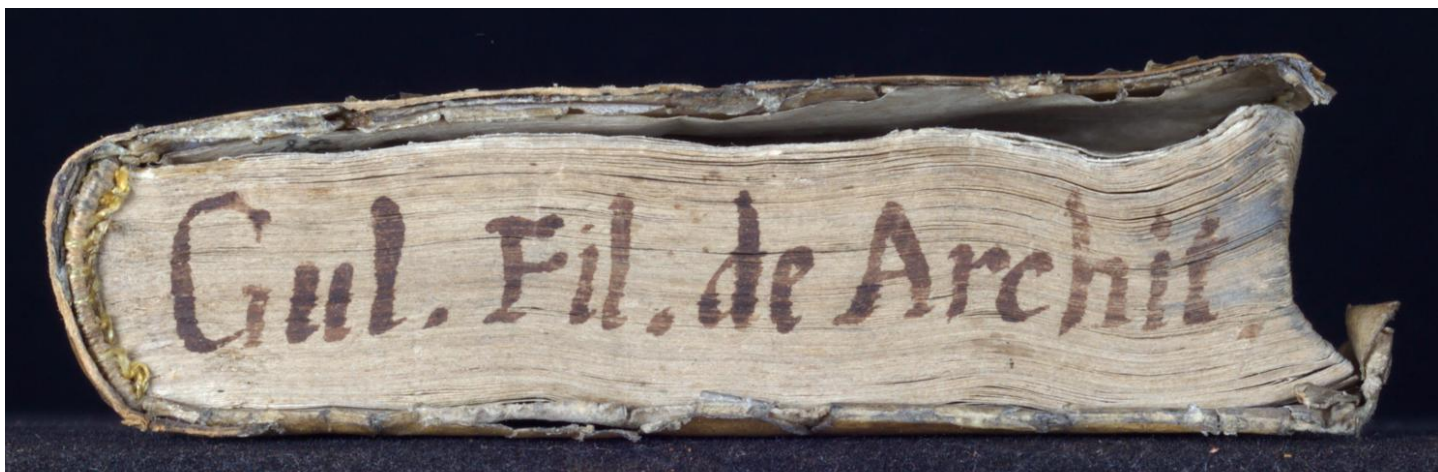 Gul. Fil. de Archit.